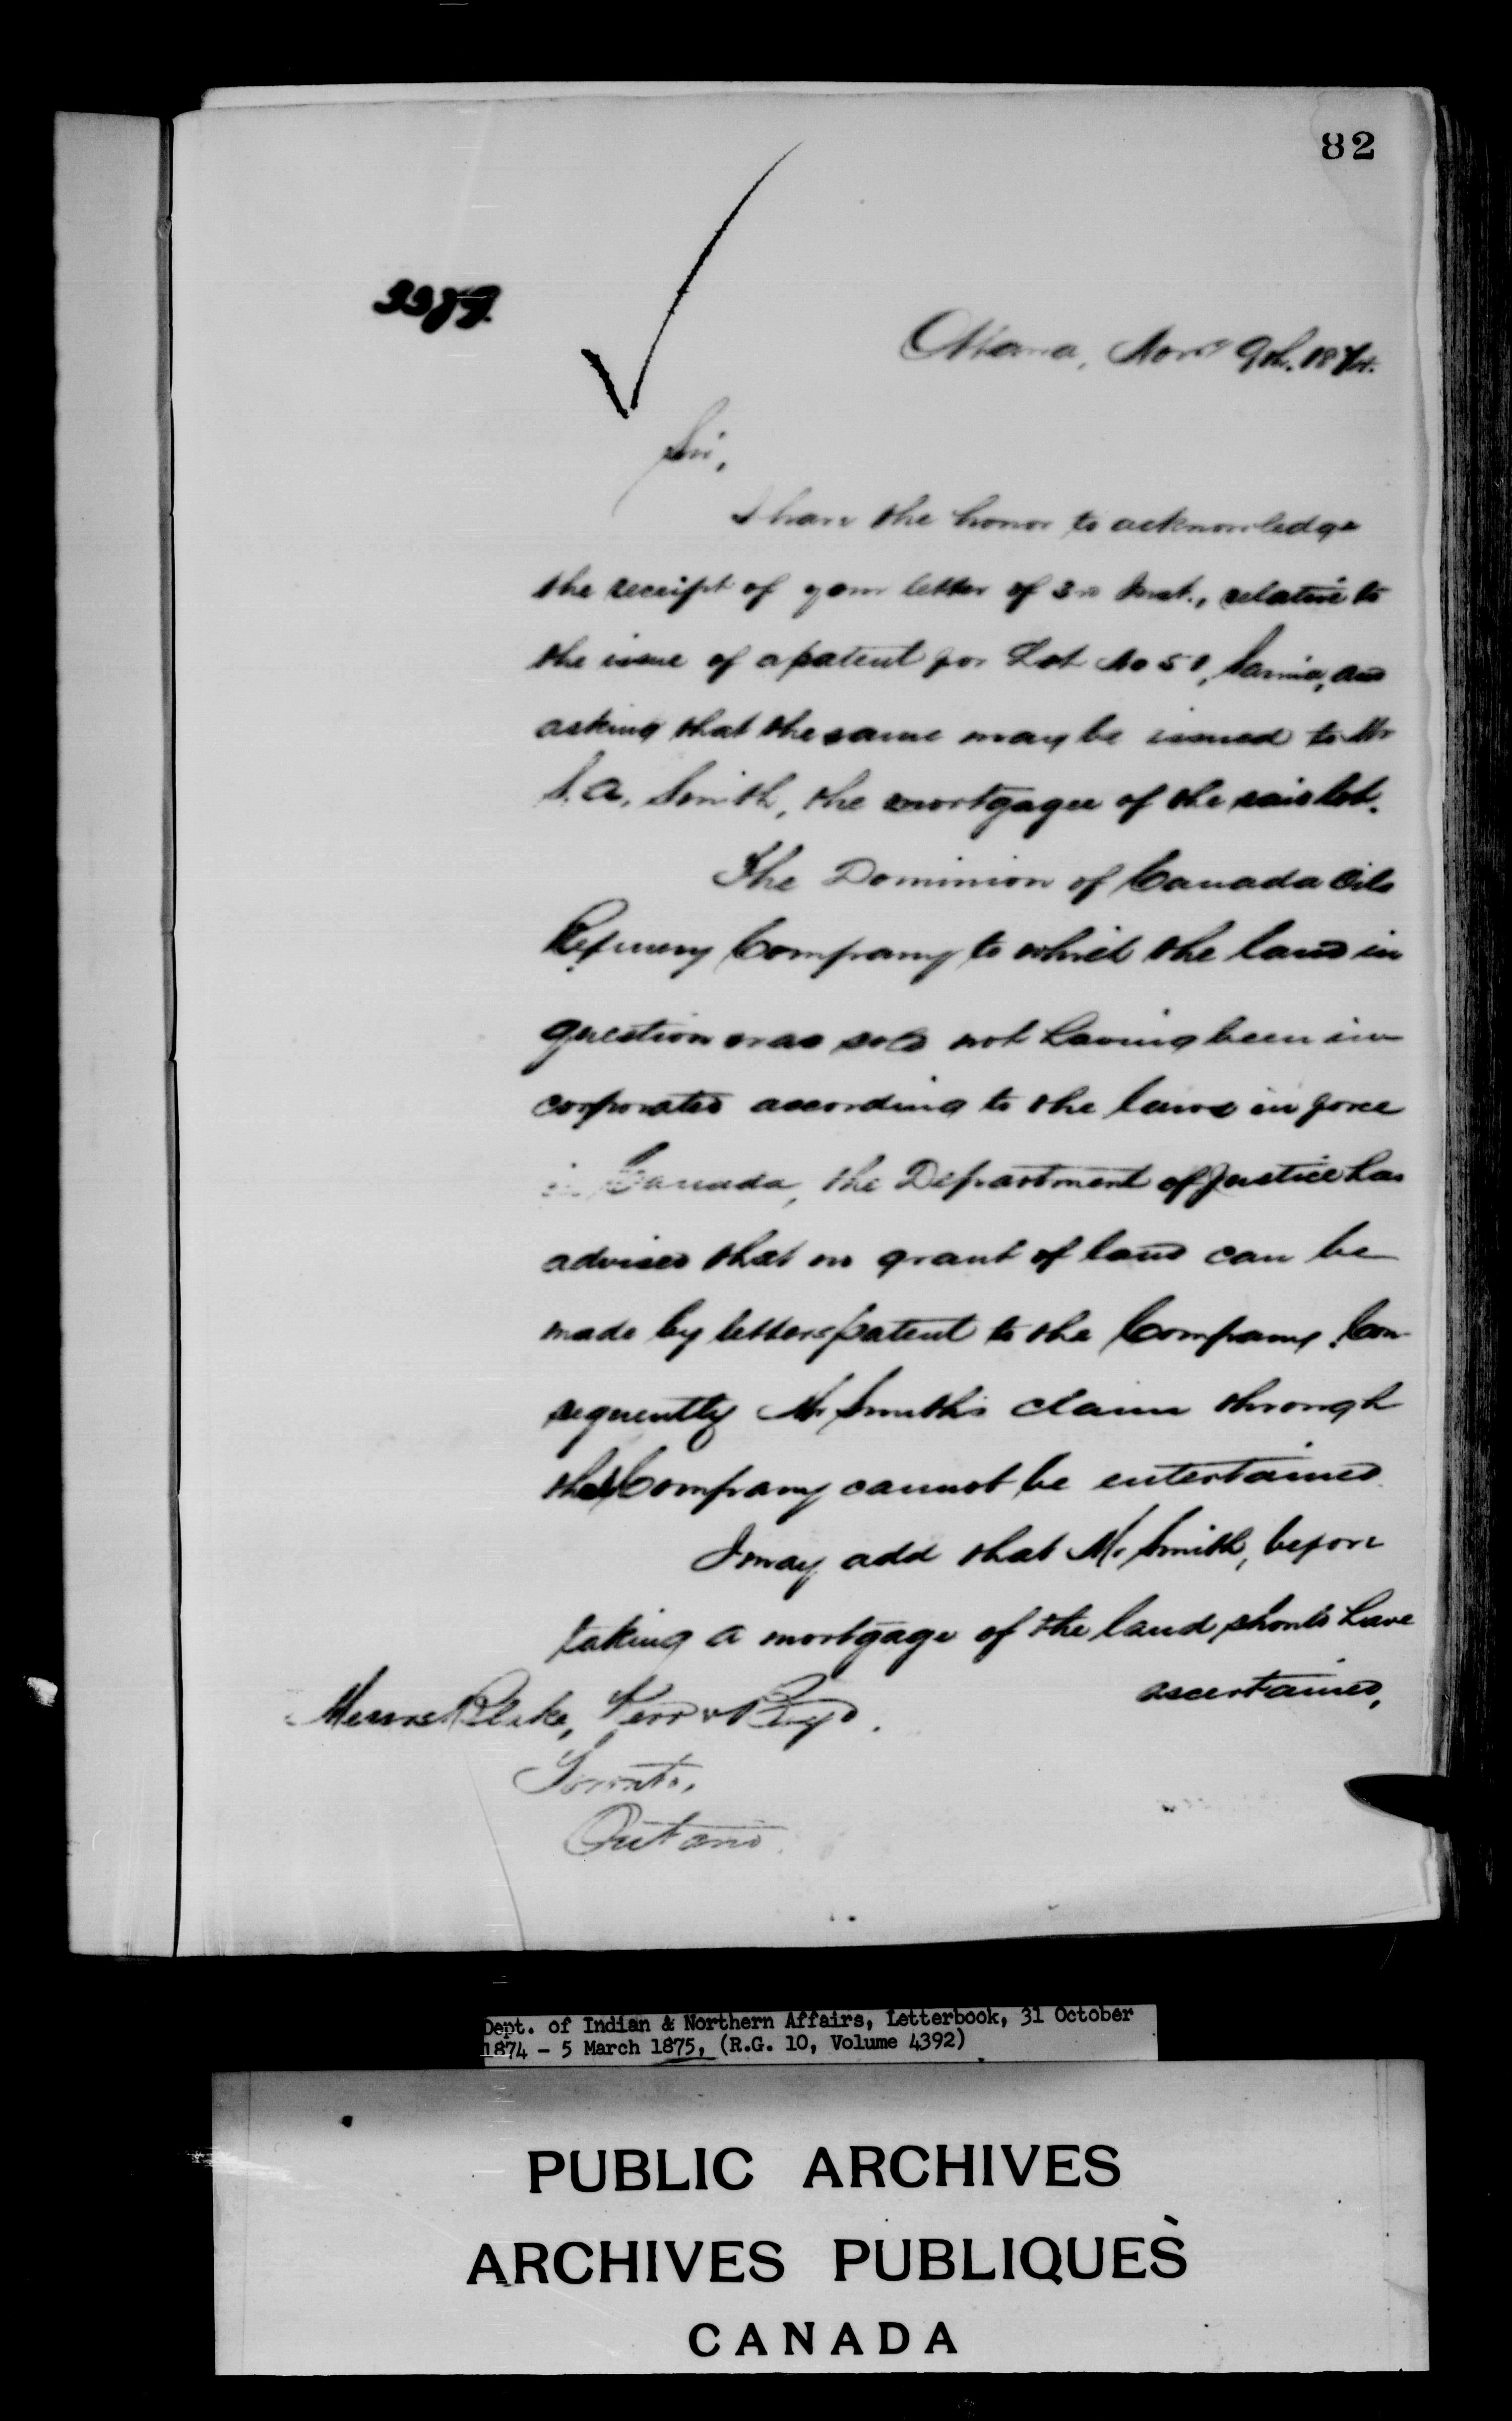 82
3379.
Ottawa, Novr 9th. 1874.
Sir,
I have the honor to acknowledge
the receipt of your letter of 3rd Inst., relative to
the issue of a patent for Lot No 51, Sarnia, and
asking that the same may be issued to Mr
S. A. Smith, the mortgagee of the said lot.
The Dominion of Canada Oils
Refinery Company to which the land in
question was sold not having been in-
corporated according to the laws in force
in Canada, the Department of Justice has
advised that no grant of land can be
made by letters patent to the Company. Con-
sequently Mr Smith's claim through
the Company cannot be entertained
I may add that Mr Smith, before
taking a mortgage of the land should have
ascertained,
Messrs Blake, Kerr & Boyd.
Toronto,
Ontario.
Dept. of Indian & Northern Affairs, Letterbook, 31 October
1874 - 5 March 1875, (R.G. 10, Volume 4392)
PUBLIC ARCHIVES
ARCHIVES PUBLIQUES
CANADA